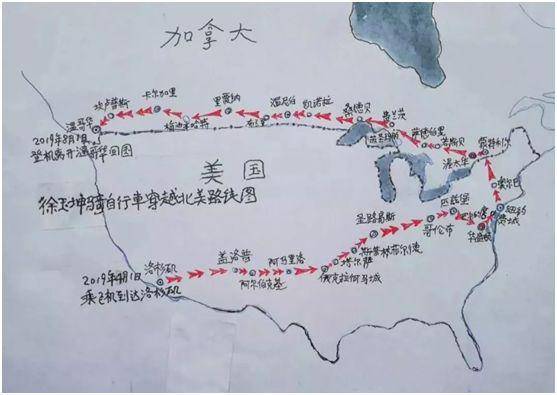 加拿大
坎卢普斯
卡尔加里
里贾纳
温尼伯
凯诺拉
桑德贝
梅迪辛哈特
苏圣玛丽
萨德伯里
渥太华
蒙特利尔
温哥华
2019年8月7日
登机离开温哥华回国
美国
徐玉坤骑自行车穿越北美路线图
奥尔巴
纽约
费城
华盛顿
匹兹堡
哥伦布
圣路易斯
斯普林菲尔德
塔尔萨
俄克拉何马城
阿马里洛
阿尔伯克基
盖洛普
洛杉矶
2019年4月1日
乘飞机到达洛杉矶